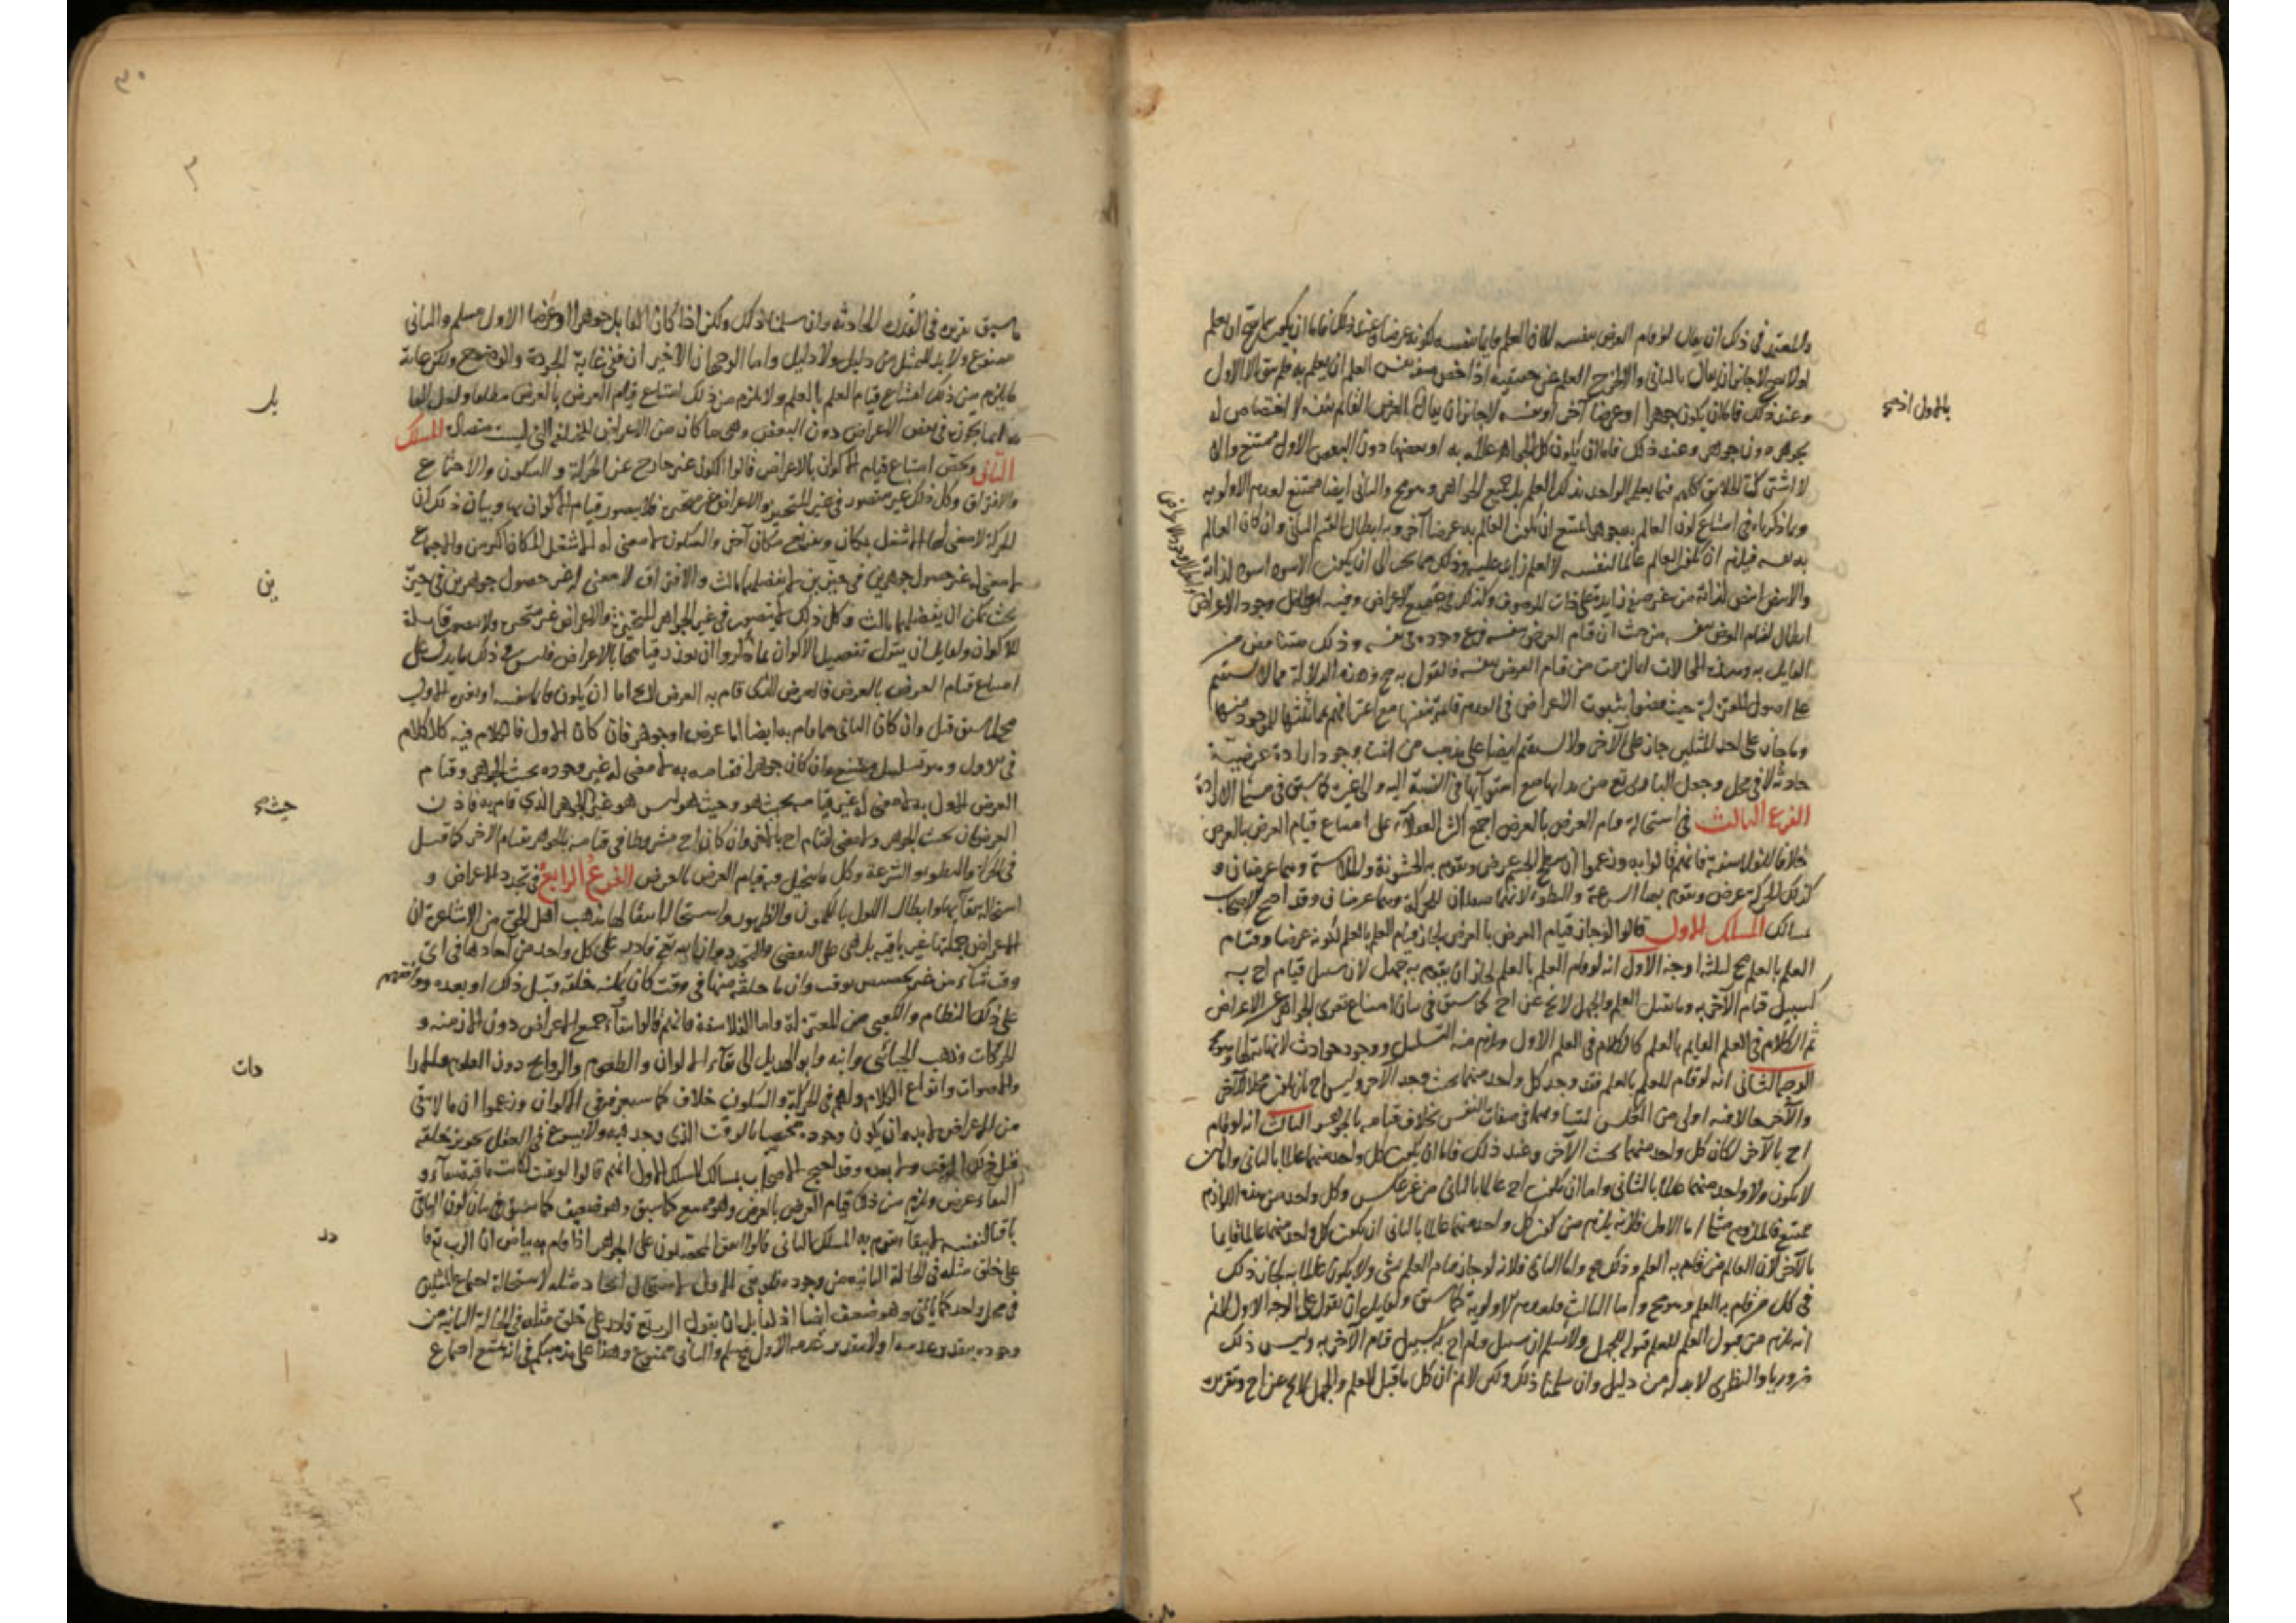 والمعتمد في ذلك ان يقال لو قام العرض بنفسه لكان العلم قايما بنفسه لكونه عرضا وعند ذلك فاما ان يكون
اولا يصح لا جائز ان يقال بالثاني والا لخرج العلم عن حقيقته اذ اخص صفة نفس العلم ان يعلم به فلم يبق الا الاول
وعند ذلك فاما ان يكون جوهرا او عرضا آخر او نفسه لا جائز ان يقال العرض القائم بنفسه لا اختصاص له
بجوهر دون جوهر وعند ذلك فاما ان يكون كل الجواهر عالمة به او بعضها دون البعض الاول ممتنع والا
لا اشتركت الخلايق كلهم فيما يعلم الواحد بذلك العلم بل جميع الجواهر وهو مح والثاني ايضا ممتنع لعدم الاولوية
وبما ذكرناه في امتناع كون العالم به جوهرا يمتنع ان يكون العالم به عرضا آخر وبه ابطال القسم الثاني وان كان العالم
به نفسه فيلزم ان يكون العلم عالما لنفسه لا لعلم زايد عليه وذلك مما يجر الى ان يكون الاسود اسود لذاته
والابيض ابيض لذاته من غير صفة زايدة على ذات الموصوف وكذلك في جميع الاعراض وفيه ابطال وجود الاعراض
ابطال لقيام العرض بنفسه من حيث ان قيام العرض بنفسه فرع وجوده في نفسه وذلك متناقض
القايل به وهذه المحالات انما لزمت من قيام العرض بنفسه فالقول به مح وهذه الدلالة مما لا تستقيم
على اصول المعتزلة حيث قضوا بثبوت الاعراض في العدم قايمة بنفسها مع اعترافهم بمماثلتها للموجود منها
وما جاز على احد المثلين جاز على الآخر ولا تستقيم ايضا على مذهب من اثبت وجود ارادة عرضية
حادثة لا في محل وجعل الباري تع مريدا بها مع استوائها في النسبة اليه والى غيره كما سبق في مسئلة الارادة
الفرع الثالث في استحالة قيام العرض بالعرض اجمع اكثر العقلاء على امتناع قيام العرض بالعرض
خلافا للفلاسفة فانهم قالوا به وزعموا ان سطح الجسم عرض وتقوم به الخشونة والملاسة وهما عرضان و
كذلك الحركة عرض وتقوم بها السرعة والبطؤ لانهما صفتان للحركة وهما عرضان وقد احتج الاصحاب
بمسالك المسلك الاول قالوا لو جاز قيام العرض بالعرض لجاز قيام العلم بالعلم لكونه عرضا وقيام
العلم بالعلم مح لثلثة اوجه الاول انه لو قام العلم بالعلم لجاز ان يقوم به جهل لان سبيل قيام احـ به
كسبيل قيام الآخر به وما يقبل العلم والجهل لا يخ عن احـ كما سبق في بيان امتناع تعرى الجواهر عن الاعراض
ثم الكلام في العلم القايم بالعلم كالكلام في العلم الاول ويلزم منه التسلسل ووجود حوادث لا نهاية لها وهو مح
الوجه الثاني انه لو قام العلم بالعلم فقد وجد كل واحد منهما بحيث وجد الآخر وليس احـ بان يكون محلا للآخر
والآخر حالا فيه اولى من العكس لتساويهما في صفات النفس بخلاف قيامه بالجوهر الثالث انه لو قام
احـ بالآخر لكان كل واحد منهما بحيث الآخر وعند ذلك فاما ان يكون كل واحد منهما عالما بالثاني واما ان
لا يكون ولا واحد منهما عالما بالثاني واما ان يكون احـ عالما بالثاني من غير عكس وكل واحد من هذه اللوازم
ممتنع فالملزوم مثلها اما الاول فلانه يلزم من كون كل واحد منهما عالما بالثاني ان يكون كل واحد منهما عالما قايما
بالآخر لان العالم من قام به العلم وذلك مح واما الثاني فلانه لو جاز قيام العلم بشي ولا يكون عالما به لجاز ذلك
في كل من قام به العلم وهو مح واما الثالث فلعدم الاولوية كما سبق ولقايل ان يقول على الوجه الاول لا نم
انه يلزم من قبول العلم للعلم قبوله للجهل ولا نسلم ان سبيل قيام احـ به كسبيل قيام الآخر به وليس ذلك
ضروريا والنظري لا بد له من دليل وان سلمنا ذلك ولكن لا نم ان كل ما قبل العلم والجهل لا يخ عن احـ وتقريره
ما سبق تقريره في القدرة الحادثة وان سلمنا ذلك ولكن اذا كان القابل جوهرا او عرضا الاول مسلم والثاني
ممنوع ولا بد للتمثيل من دليل ولا دليل واما الوجهان الاخيران ففي غاية الجودة والوضوح ولكن غاية
ما يلزم من ذلك امتناع قيام العلم بالعلم ولا يلزم من ذلك امتناع قيام العرض بالعرض مطلقا
انما يجوزه في بعض الاعراض دون البعض وهي ما كان من الاعراض المختلفة التي ليست متضادة المسلك
الثاني ويخص امتناع قيام الاكوان بالاعراض قالوا الكون غير خارج عن الحركة والسكون والاجتماع
والافتراق وكل ذلك غير متصور في غير المتحيز والاعراض غير متحيزة فلا يتصور قيام الاكوان بها وبيان ذلك ان
الحركة لا معنى لها الا شغل مكان وتفريغ مكان آخر والسكون لا معنى له الا شغل المكان اكثر من والاجتماع
لا معنى له غير حصول جوهرين في حيزين لا يفصلهما ثالث والافتراق لا معنى له غير حصول جوهرين في حيز
بحيث يمكن ان يفصلهما ثالث وكل ذلك لا يتصور في غير الجواهر المتحيزة والاعراض غير متحيزة ولا يتصور قابلة
للاكوان ولقايل ان يقول تفصيل الاكوان بما ذكروا ان تعذر قيامها بالاعراض فليس في ذلك ما يدل على
امتناع قيام العرض بالعرض فالعرض الذي قام به العرض لا يخ اما ان يكون قايما بنفسه او بغيره الاول
مح لما سبق قبل وان كان الثاني فما قام به ايضا اما عرض او جوهر فان كان الاول فالكلام فيه كالكلام
في الاول وهو تسلسل ممتنع وان كان جوهرا فقيامه به لا معنى له غير وجوده بحيث الجوهر وقيام
العرض الاول به لا معنى له غير قيامه بحيث هو وحيث هو ليس هو غير الجوهر الذي قام به فاذن
العرضان بحيث الجوهر ولا معنى لقيام احـ بالآخر وان كان احـ مشروطا في قيامه بالجوهر بقيام الآخر كما قيل
في الحركة والبطؤ والسرعة وكل ما يتخيل فيه قيام العرض بالعرض الفرع الرابع في تجدد الاعراض و
استحالة بقائها وابطال القول بالكمون والظهور واستحالة انتقالها مذهب اهل الحق من الاشاعرة ان
الاعراض جملتها غير باقية بل هي على التقضي والتجدد وان الله تع قادر على كل واحد من آحادها في اي
وقت شاء من غير تخصيص بوقت وان ما خلقه منها في وقت كان يمكنه خلقه قبل ذلك او بعده ووافقهم
على ذلك النظام والكعبي من المعتزلة واما الفلاسفة فانهم قالوا ببقاء جميع الاعراض دون الازمنة و
الحركات وذهب الجبائي وابنه وابو الهذيل الى بقاء الالوان والطعوم والروايح دون العلوم والارادات
والاصوات وانواع الكلام ولهم في الحركة والسكون خلاف كما سيعرف في الاكوان وزعموا ان ما لا يبقى
من الاعراض لا بد وان يكون وجوده مختصا بالوقت الذي وجد فيه ولا يسوغ في العقل تجويز خلقه
قبل ذلك الوقت ولا بعده وقد احتج الاصحاب بمسالك المسلك الاول انهم قالوا لو بقيت لكانت باقية ببقاء و
البقاء عرض ويلزم من ذلك قيام العرض بالعرض وهو ممتنع كما سبق وهو ضعيف كما سبق في بيان كون الباقي
باقيا لنفسه لا ببقاء يقوم به المسلك الثاني قالوا اتفق المحققون على الجوهر اذا قام به بياض ان الرب تع قا
على خلق مثله في الحالة الثانية من وجوده فلو بقي الاول لاستحال ايجاد مثله لاستحالة اجتماع المثلين
في محل واحد كما ياتي وهو ضعيف ايضا اذ لقايل ان يقول الرب تع قادر على خلق مثله في الحالة الثانية من
وجوده بتقدير عدمه اولا بتقدير عدمه الاول مسلم والثاني ممنوع وهذا على مذهبكم في انه يمتنع اجتماع